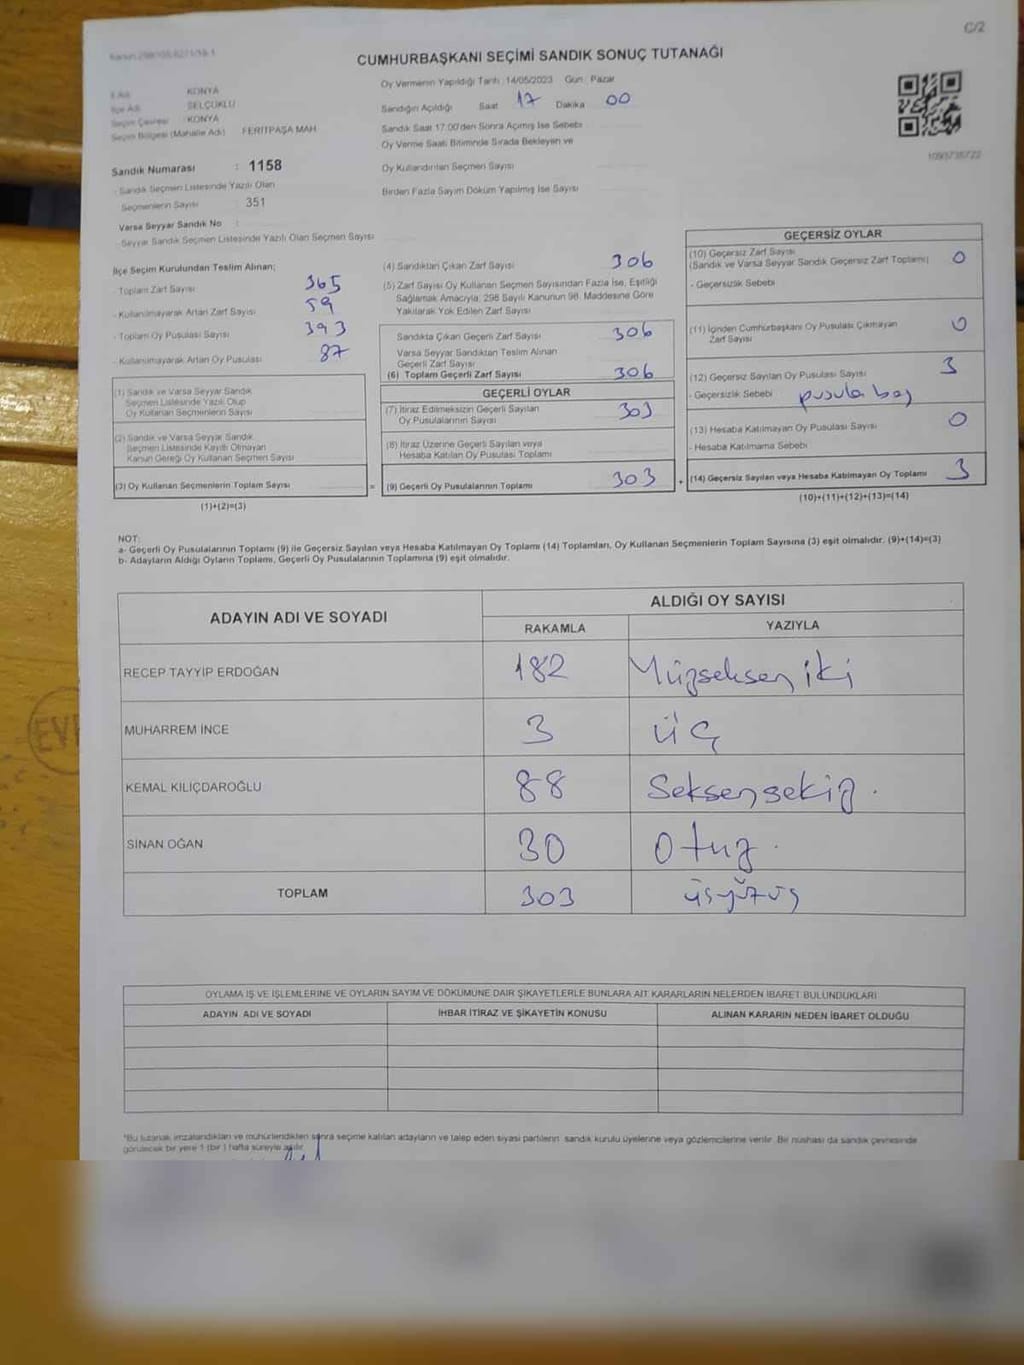 C/2
CUMHURBAŞKANI SEÇİMİ SANDIK SONUÇ TUTANAĞI
İl Adı KONYA
İlçe Adı SELÇUKLU
Seçim Çevresi : KONYA
Seçim Bölgesi (Mahalle Adı) FERİTPAŞA MAH.
Sandık Numarası : 1158
- Sandık Seçmen Listesinde Yazılı Olan
Seçmenlerin Sayısı 351
Varsa Seyyar Sandık No :
- Seyyar Sandık Seçmen Listesinde Yazılı Olan Seçmen Sayısı
Oy Vermenin Yapıldığı Tarih : 14/05/2023 Gün : Pazar
Sandığın Açıldığı Saat 17 Dakika 00
Sandık Saat 17:00'den Sonra Açımış İse Sebebi
Oy Verme Saati Bitiminde Sırada Bekleyen ve
Oy Kullandırılan Seçmen Sayısı
Birden Fazla Sayım Döküm Yapılmış İse Sayısı
1090735722
İlçe Seçim Kurulundan Teslim Alınan;
- Toplam Zarf Sayısı 365
- Kullanılmayarak Artan Zarf Sayısı 59
- Toplam Oy Pusulası Sayısı 393
- Kullanılmayarak Artan Oy Pusulası 87
(1) Sandık ve Varsa Seyyar Sandık
Seçmen Listesinde Yazılı Olup
Oy Kullanan Seçmenlerin Sayısı
(2) Sandık ve Varsa Seyyar Sandık
Seçmen Listesinde Kayıtlı Olmayan
Kanun Gereği Oy Kullanan Seçmen Sayısı
(3) Oy Kullanan Seçmenlerin Toplam Sayısı =
(1)+(2)=(3)
(4) Sandıktan Çıkan Zarf Sayısı 306
(5) Zarf Sayısı Oy Kullanan Seçmen Sayısından Fazla İse, Eşitliği
Sağlamak Amacıyla, 298 Sayılı Kanunun 98. Maddesine Göre
Yakılarak Yok Edilen Zarf Sayısı
Sandıkta Çıkan Geçerli Zarf Sayısı 306
Varsa Seyyar Sandıktan Teslim Alınan
Geçerli Zarf Sayısı
(6) Toplam Geçerli Zarf Sayısı 306
GEÇERLİ OYLAR
(7) İtiraz Edilmeksizin Geçerli Sayılan
Oy Pusulalarının Sayısı 303
(8) İtiraz Üzerine Geçerli Sayılan veya
Hesaba Katılan Oy Pusulası Toplamı
(9) Geçerli Oy Pusulalarının Toplamı 303 +
GEÇERSİZ OYLAR
(10) Geçersiz Zarf Sayısı
(Sandık ve Varsa Seyyar Sandık Geçersiz Zarf Toplamı) 0
- Geçersizlik Sebebi
(11) İçinden Cumhurbaşkanı Oy Pusulası Çıkmayan
Zarf Sayısı 0
(12) Geçersiz Sayılan Oy Pusulası Sayısı 3
- Geçersizlik Sebebi pusula boş
(13) Hesaba Katılmayan Oy Pusulası Sayısı 0
- Hesaba Katılmama Sebebi
(14) Geçersiz Sayılan veya Hesaba Katılmayan Oy Toplamı 3
(10)+(11)+(12)+(13)=(14)
NOT:
a- Geçerli Oy Pusulalarının Toplamı (9) ile Geçersiz Sayılan veya Hesaba Katılmayan Oy Toplamı (14) Toplamları, Oy Kullanan Seçmenlerin Toplam Sayısına (3) eşit olmalıdır. (9)+(14)=(3)
b- Adayların Aldığı Oyların Toplamı, Geçerli Oy Pusulalarının Toplamına (9) eşit olmalıdır.
ADAYIN ADI VE SOYADI ALDIĞI OY SAYISI
RAKAMLA YAZIYLA
RECEP TAYYİP ERDOĞAN 182 Yüzseksen iki
MUHARREM İNCE 3 üç
KEMAL KILIÇDAROĞLU 88 Seksensekiz.
SİNAN OĞAN 30 Otuz.
TOPLAM 303 üçyüzüç
OYLAMA İŞ VE İŞLEMLERİNE VE OYLARIN SAYIM VE DÖKÜMÜNE DAİR ŞİKAYETLERLE BUNLARA AİT KARARLARIN NELERDEN İBARET BULUNDUKLARI
ADAYIN ADI VE SOYADI İHBAR İTİRAZ VE ŞİKAYETİN KONUSU ALINAN KARARIN NEDEN İBARET OLDUĞU
*Bu tutanak imzalandıktan ve mühürlendikten sonra seçime katılan adayların ve talep eden siyasi partilerin sandık kurulu üyelerine veya gözlemcilerine verilir. Bir nüshası da sandık çevresinde
görülecek bir yere 1 (bir) hafta süreyle asılır.